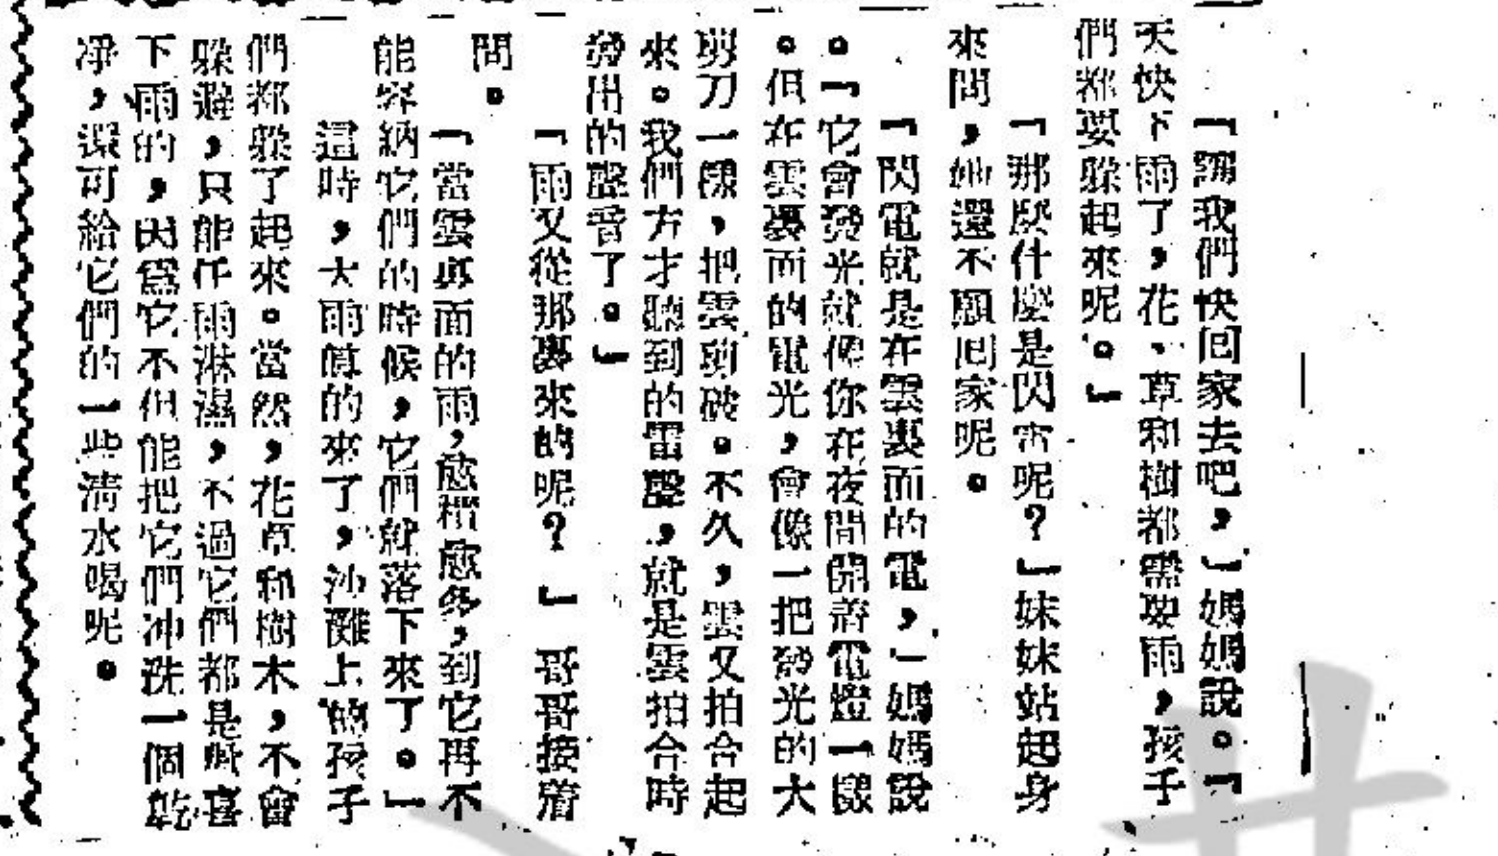 「讓我們快回家去吧，」媽媽說。「
天快下雨了，花、草和樹都需要雨，孩子
們都要躲起來呢。」
「那麼什麼是閃電呢？」妹妹站起身
來問，她還不願回家呢。
「閃電就是在雲裏面的電，」媽媽說
。「它會發光就像你在夜間開着電燈一樣
。但在雲裏面的電光，會像一把發光的大
剪刀一樣，把雲剪破。不久，雲又拍合起
來。我們方才聽到的雷聲，就是雲拍合時
發出的聲音了。」
「雨又從那裏來的呢？」哥哥接着
問。
「當雲裏面的雨，愈積愈多，到它再不
能容納它們的時候，它們就落下來了。」
這時，大雨真的來了，沙灘上的孩子
們都躲了起來。當然，花草和樹木，不會
躲避，只能任雨淋濕，不過它們都是歡喜
下雨的，因爲它不但能把它們冲洗一個乾
淨，還可給它們的一些清水喝呢。